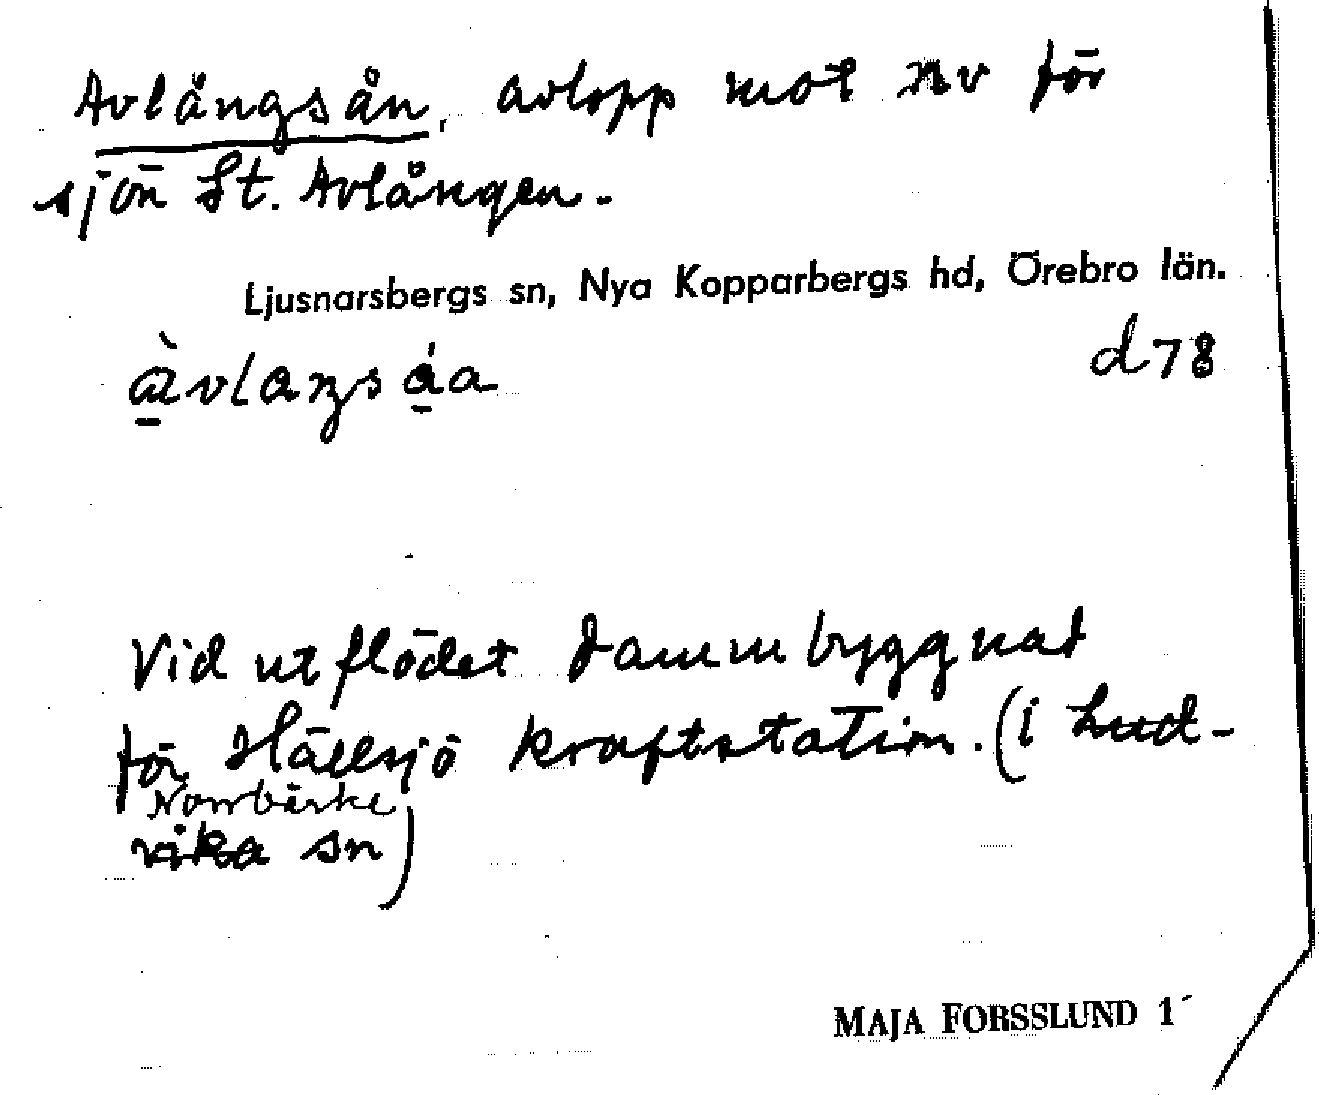 Avlångsån, avlopp mot nv för
sjön St. Avlången.
Ljusnarsbergs sn, Nya Kopparbergs hd, Örebro län.
d78
Vid utflödet dammbyggnad
för Hällsjö kraftstation. (i Lud-
Norrbärke
vika sn)
MAJA FORSSLUND 1